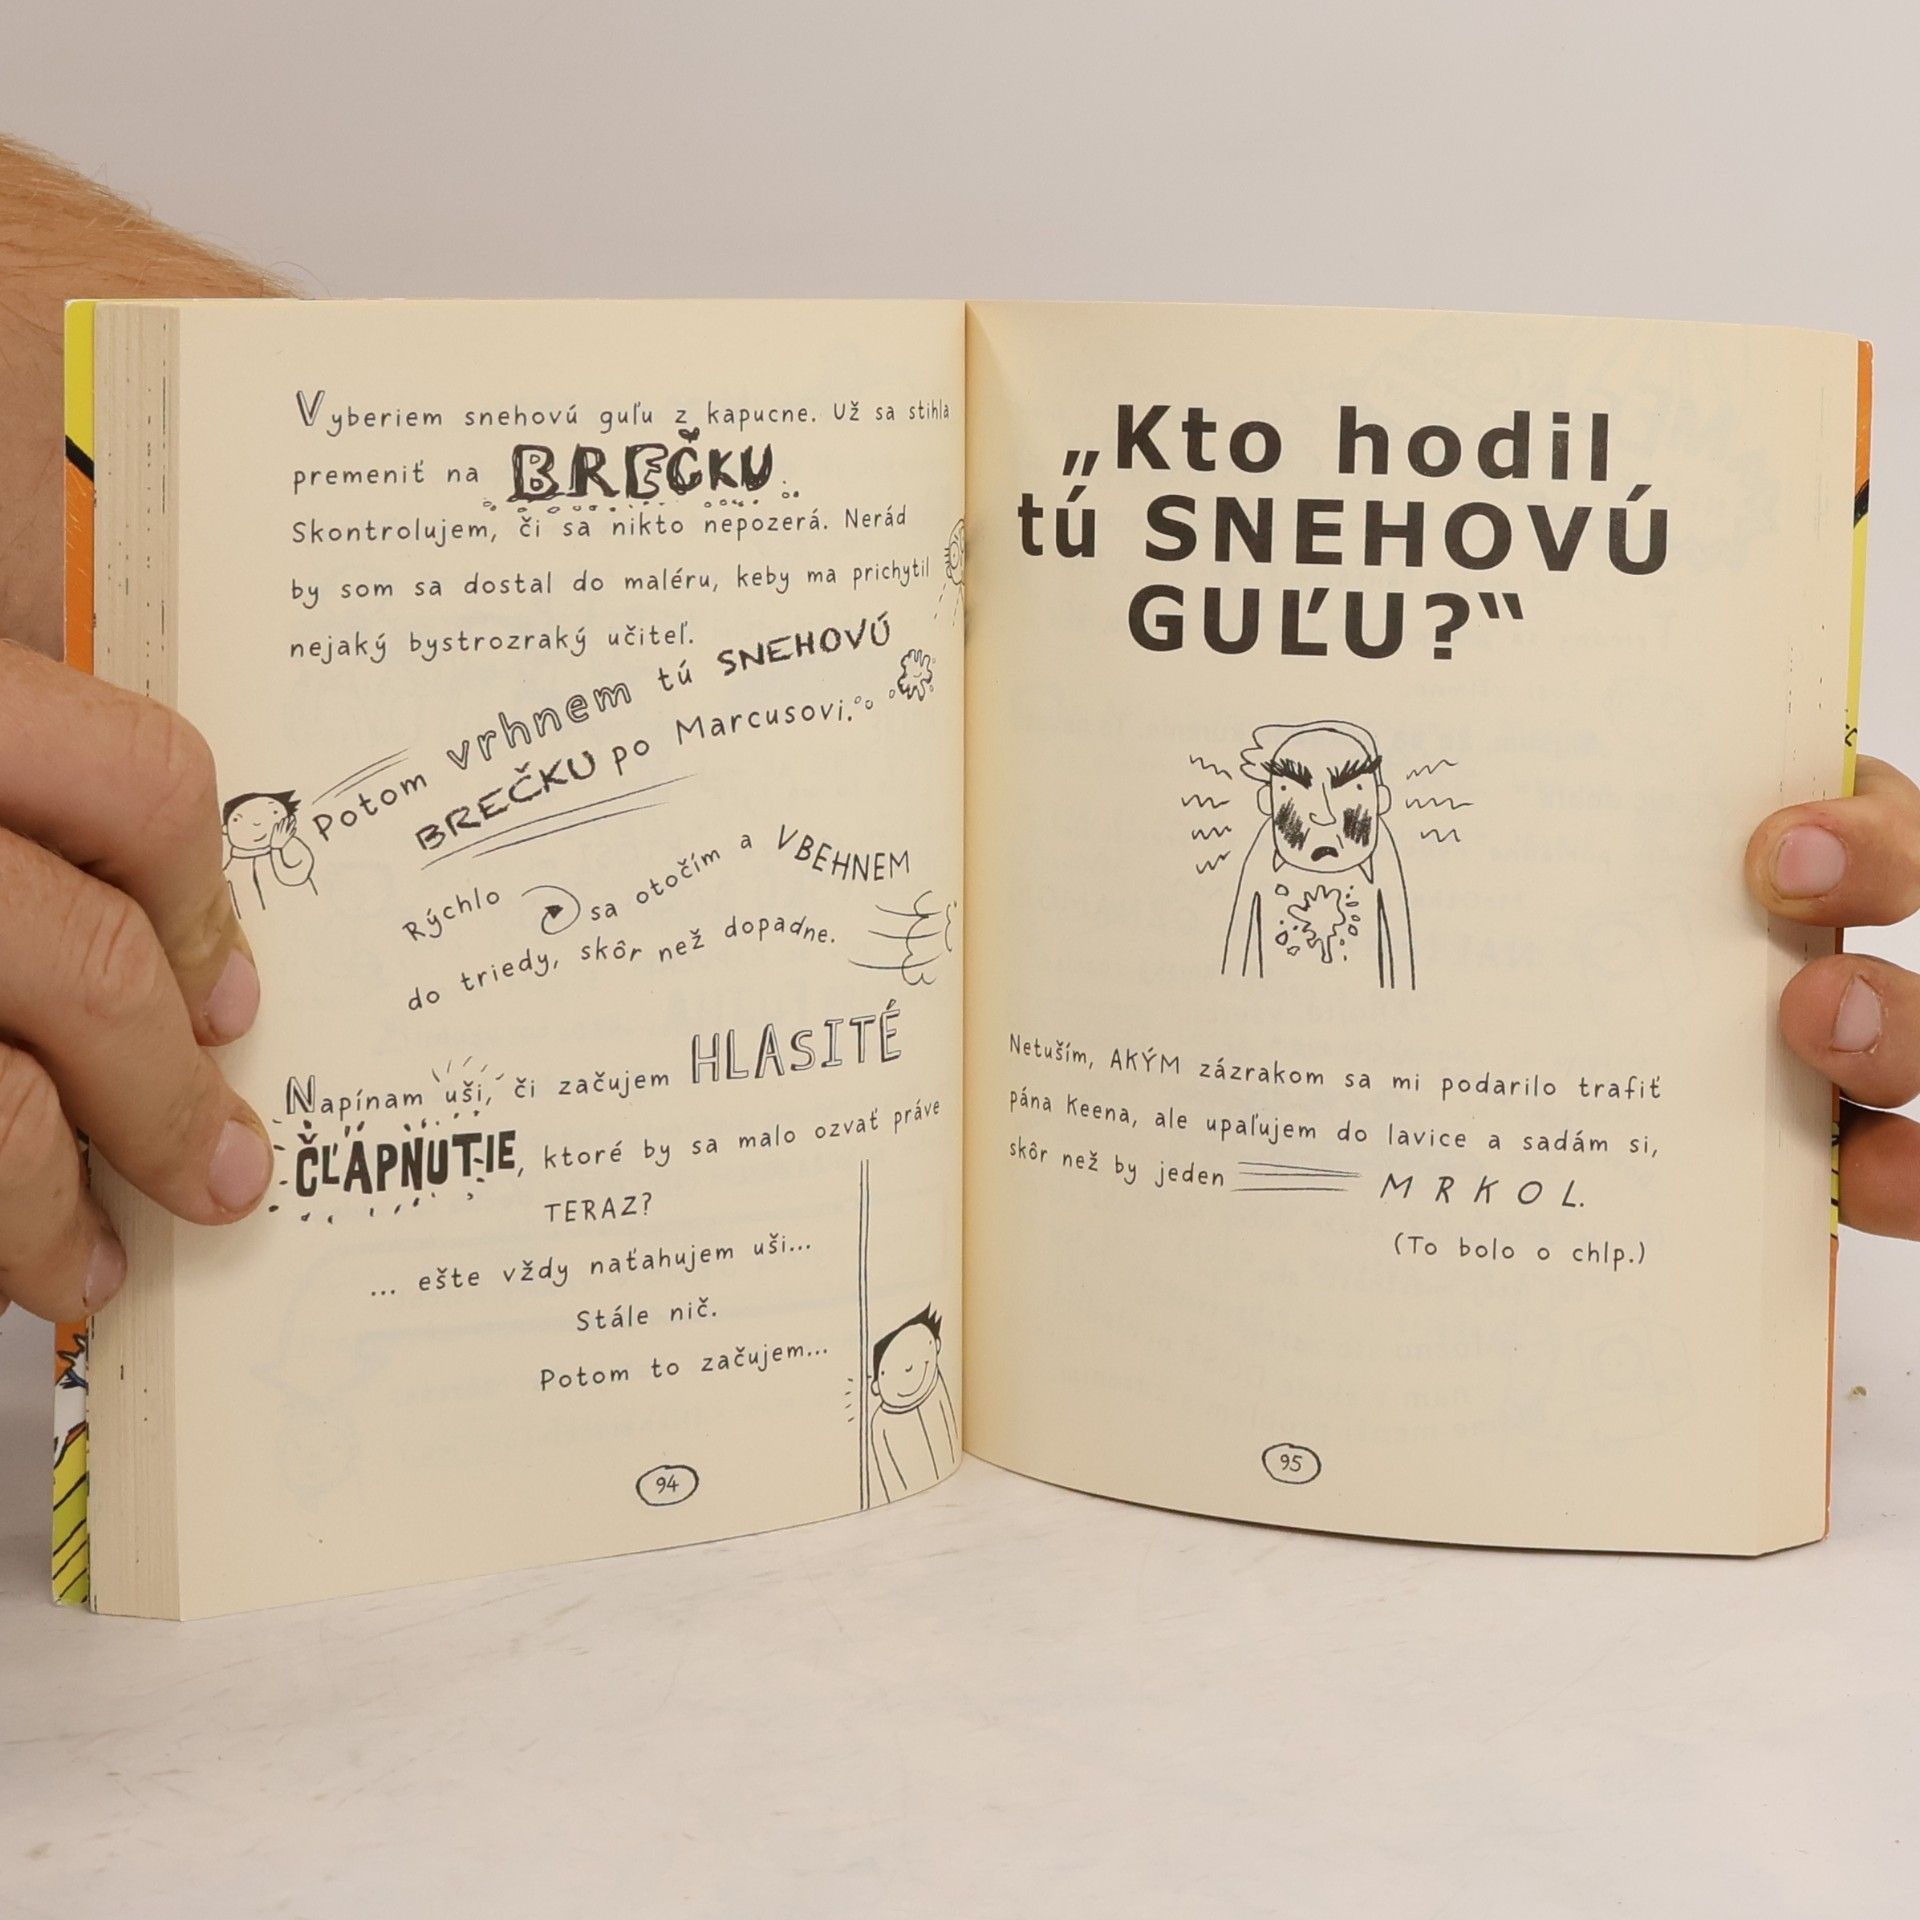 Vyberiem snehovú guľu z kapucne. Už sa stihla
premeniť na BREČKU.
Skontrolujem, či sa nikto nepozerá. Nerád
by som sa dostal do maléru, keby ma prichytil
nejaký bystrozraký učiteľ.
Potom vrhnem tú SNEHOVÚ
BREČKU po Marcusovi.
Rýchlo sa otočím a VBEHNEM
do triedy, skôr než dopadne.
Napínam uši, či začujem HLASITÉ
ČĽAPNUTIE, ktoré by sa malo ozvať práve
TERAZ?
... ešte vždy naťahujem uši...
Stále nič.
Potom to začujem...
94
„Kto hodil
tú SNEHOVÚ
GUĽU?“
Netuším, AKÝM zázrakom sa mi podarilo trafiť
pána Keena, ale upaľujem do lavice a sadám si,
skôr než by jeden MRKOL.
(To bolo o chlp.)
95